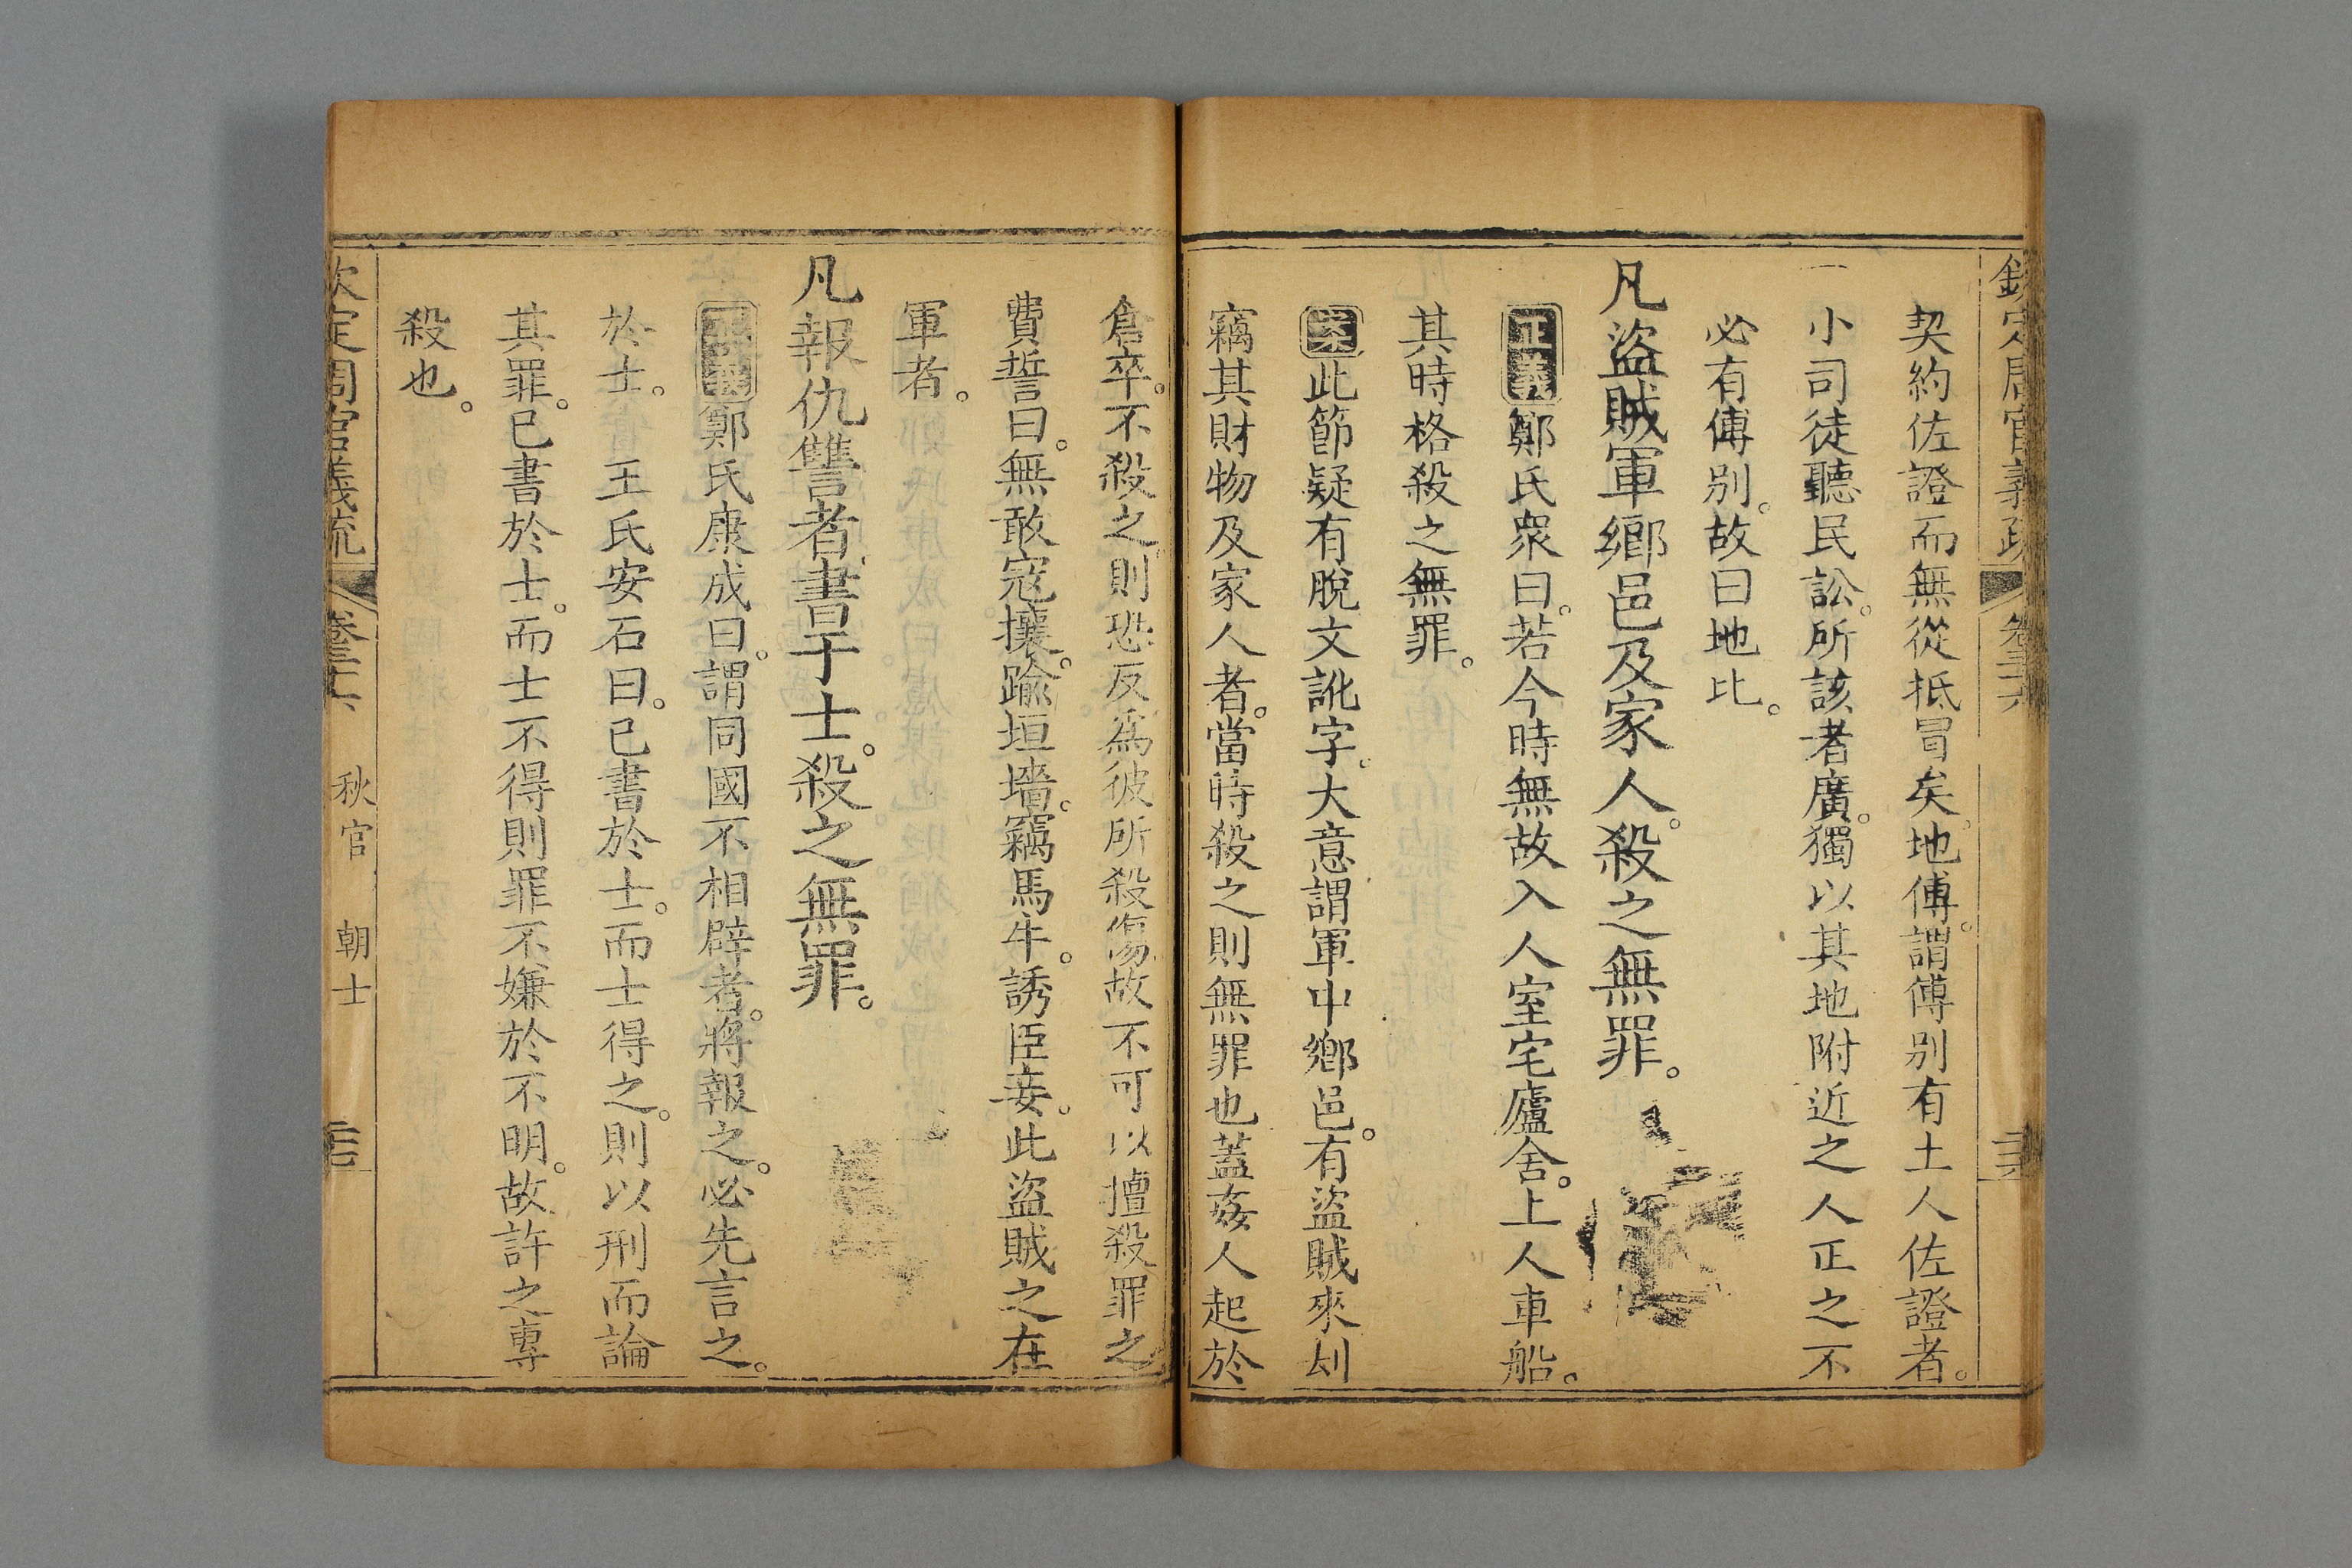 欽定周官義疏 卷三十六
契約佐證而無從抵冒矣。地傅。謂傅别有土人佐證者。
小司徒聽民訟。所該者廣。獨以其地附近之人正之不
必有傅别。故曰地比。
凡盜賊軍鄉邑及家人。殺之無罪。
正義鄭氏衆曰。若今時無故入人室宅廬舍。上人車船。
其時格殺之無罪。
案此節疑有脫文訛字。大意謂軍中鄉邑。有盜賊來刦
竊其財物及家人者。當時殺之則無罪也蓋姦人起於
倉卒。不殺之。則恐反為彼所殺傷故不可以擅殺罪之
費誓曰。無敢寇攘。踰垣墻。竊馬牛。誘臣妾。此盜賊之在
軍者。
凡報仇讐者。書于士。殺之無罪。
正義鄭氏康成曰。謂同國不相辟者。將報之。必先言之。
於士。 王氏安石曰。已書於士。而士得之。則以刑而論
其罪。已書於士。而士不得則罪不嫌於不明。故許之專
殺也。
欽定周官義疏 卷三十六 秋官 朝士